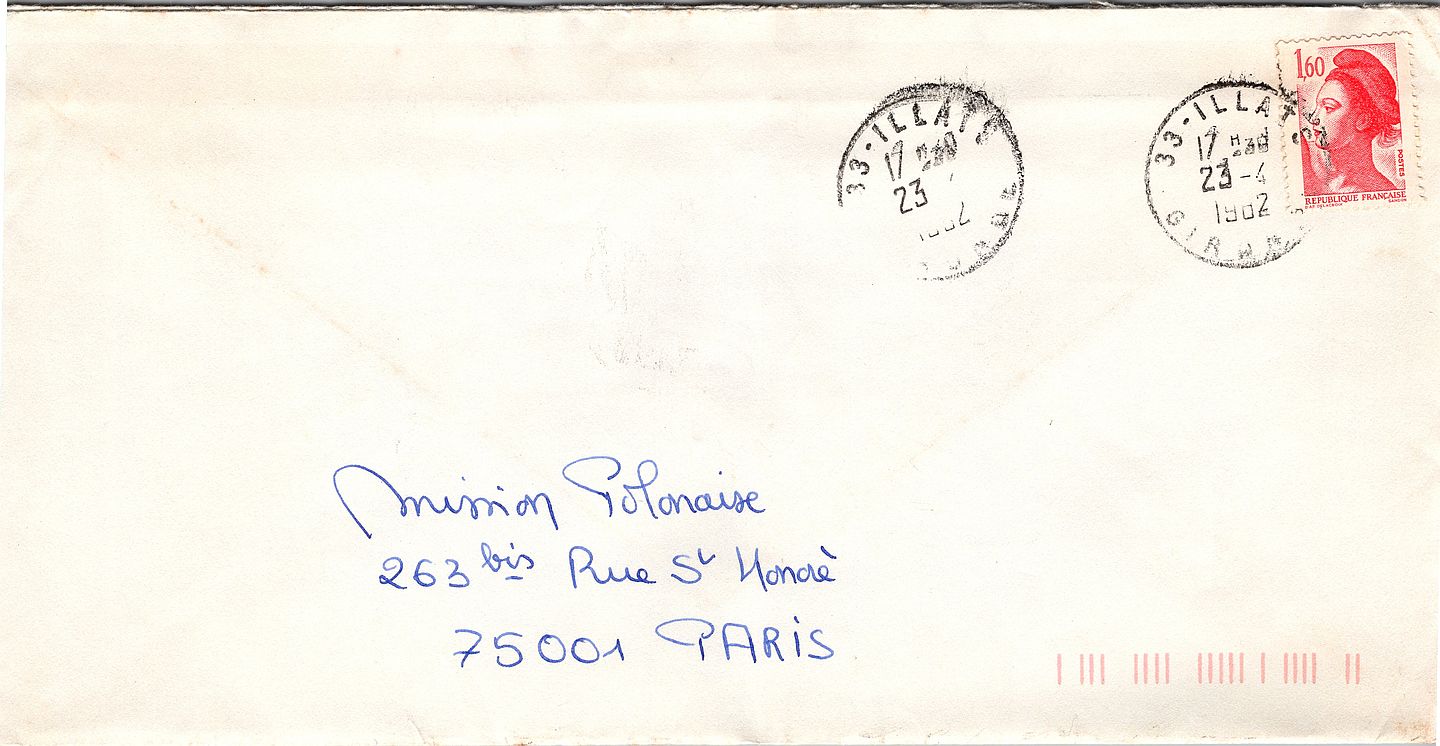 33-ILLATS
17 H30
23
1982
GIRONDE
33-ILLATS
17 H30
23-4
1982
GIRONDE
1,60
POSTES
REPUBLIQUE FRANÇAISE
D'AP. DELACROIX GANDON
Mission Polonaise
263 bis Rue St Honorè
75001 PARIS